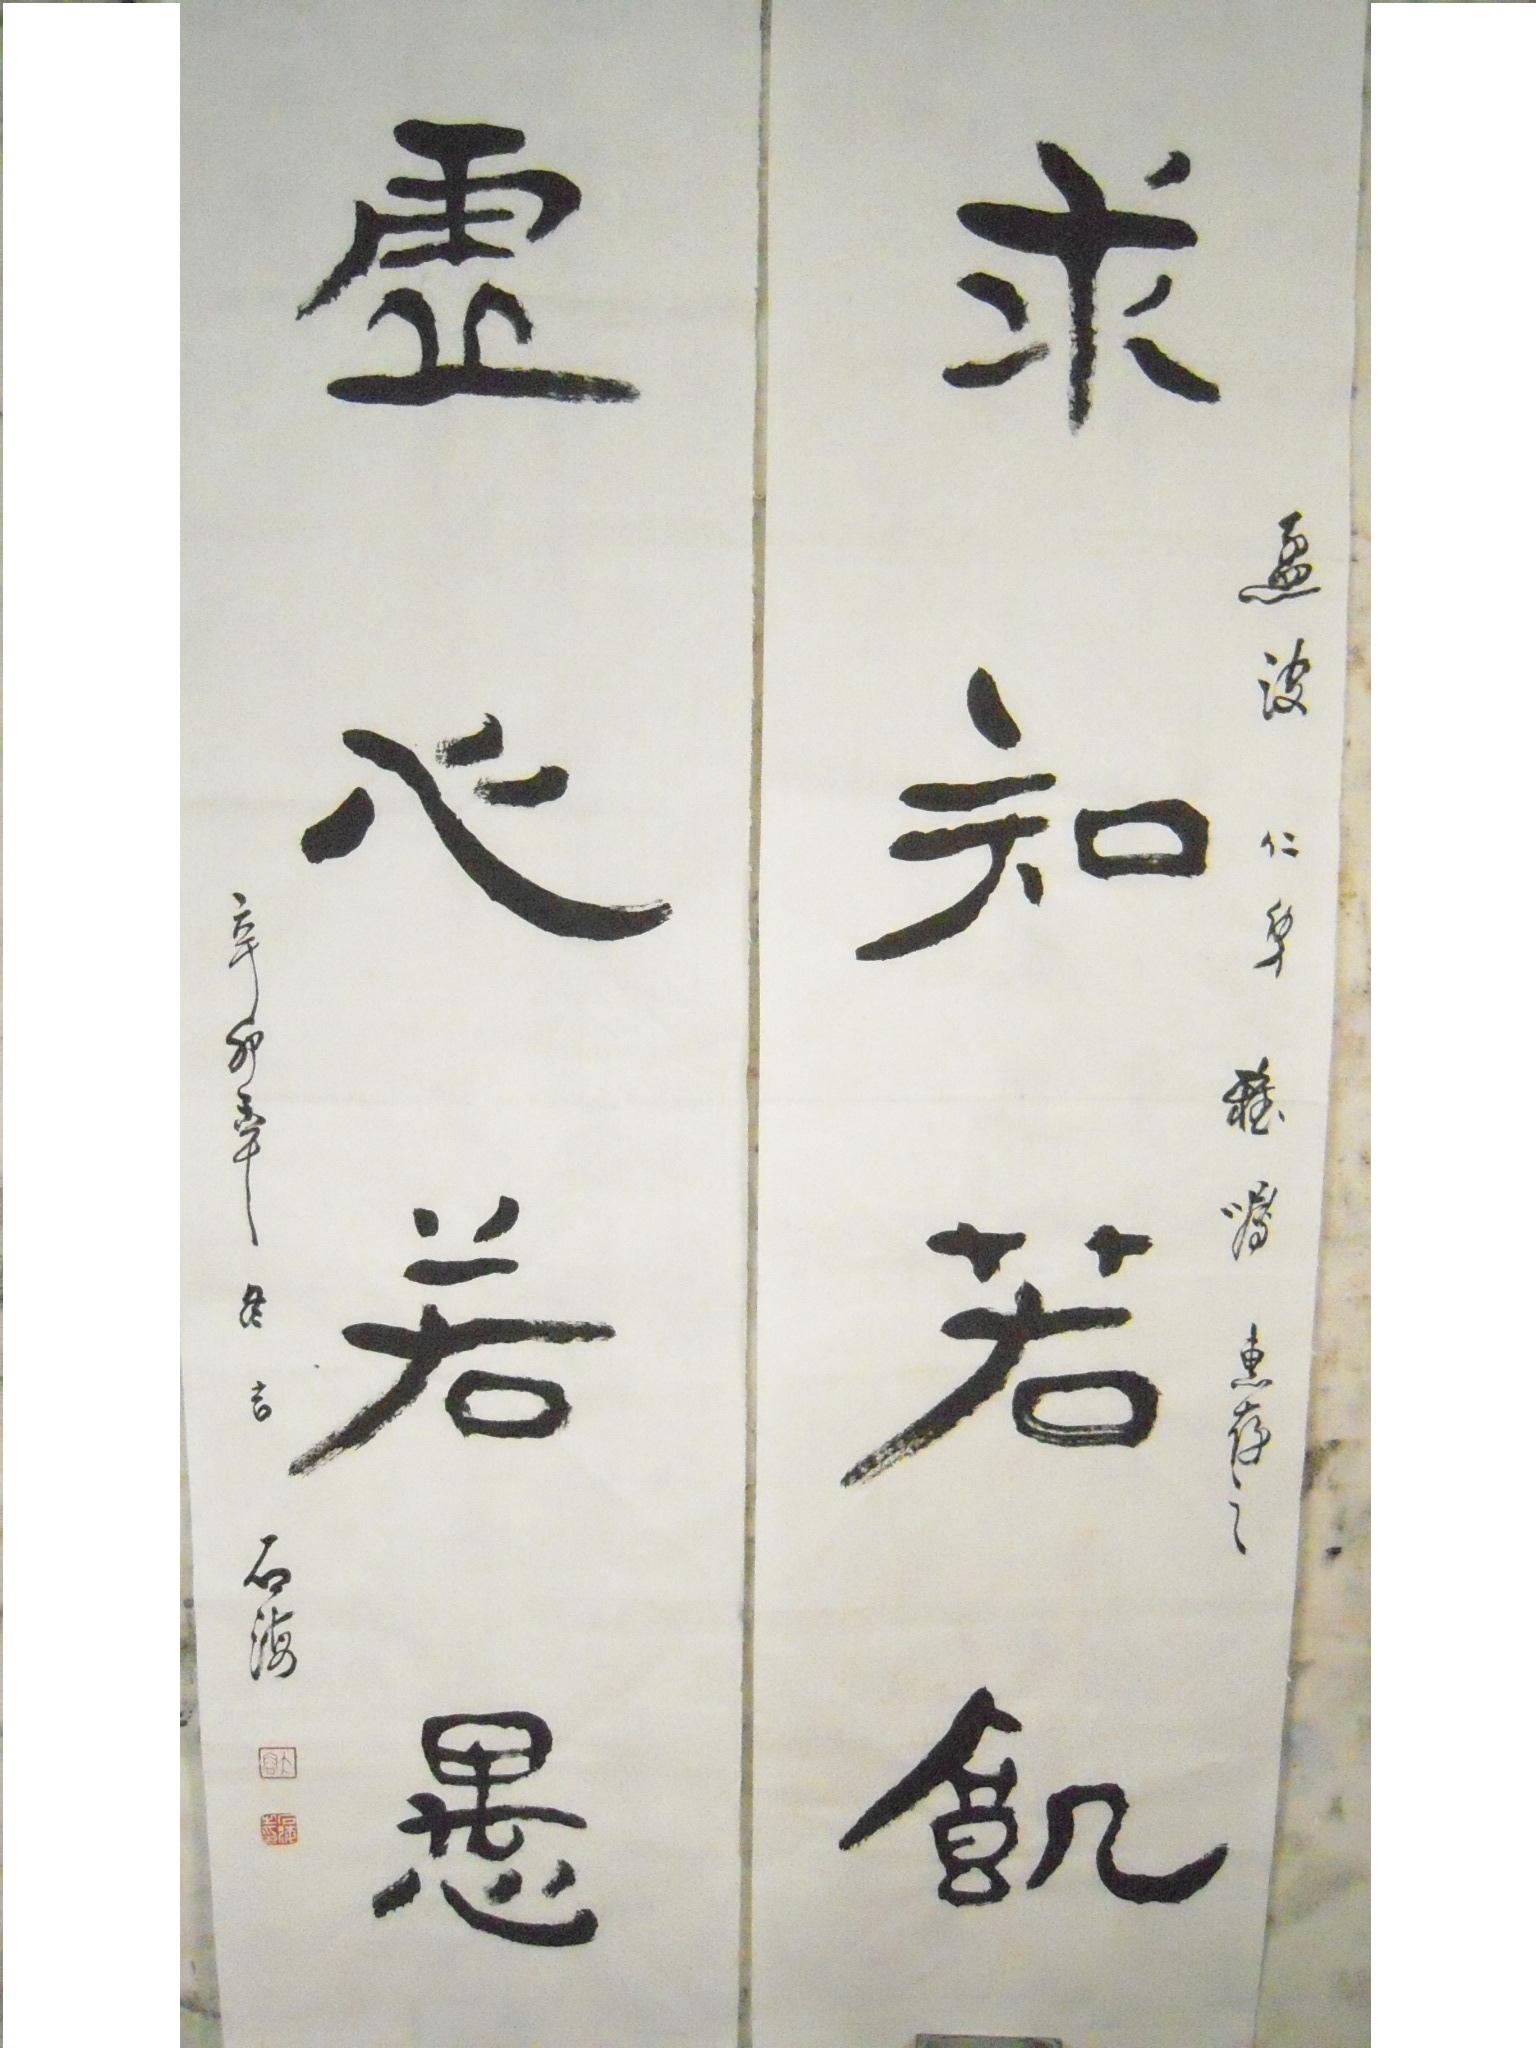 求知若飢
孟波仁弟雅嘱惠存之
虛心若愚
辛卯季冬吉石海